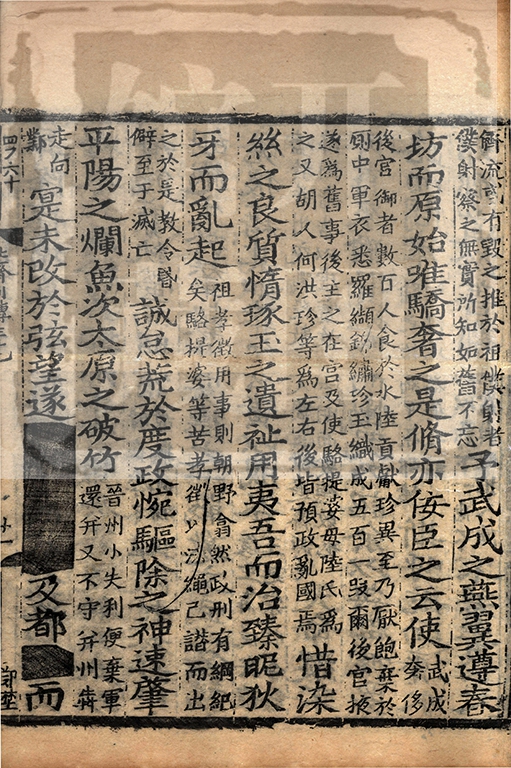 儕流或有毀之推於祖僕射者
僕射察之無實所知如舊不忘
予武成之燕翼遵春
坊而原始唯驕奢之是脩亦佞臣之云使
武成
奢侈
後宮御者數百人食於水陸貢獻珍異至乃厭飽棄於
厠中軍衣悉羅纈錦繡珍玉織成五百一叚爾後宮掖
遂爲舊事後主之在宮乃使駱提婆母陸氏爲
之又胡人何洪珍等爲左右後皆預政亂國焉
惜染
絲之良質惰琢玉之遺祉用夷吾而治臻昵狄
牙而亂起
祖孝徵用事則朝野翕然政刑有綱紀
矣駱提婆等苦孝徵以法繩己譖而出
之於是教令昬
僻至于滅亡
誠怠荒於度政惋驅除之神速肇
平陽之爛魚次太原之破竹
晉州小失利便棄軍
還并又不守并州犇
走向
鄴
寔未改於弦望遂
及都
而